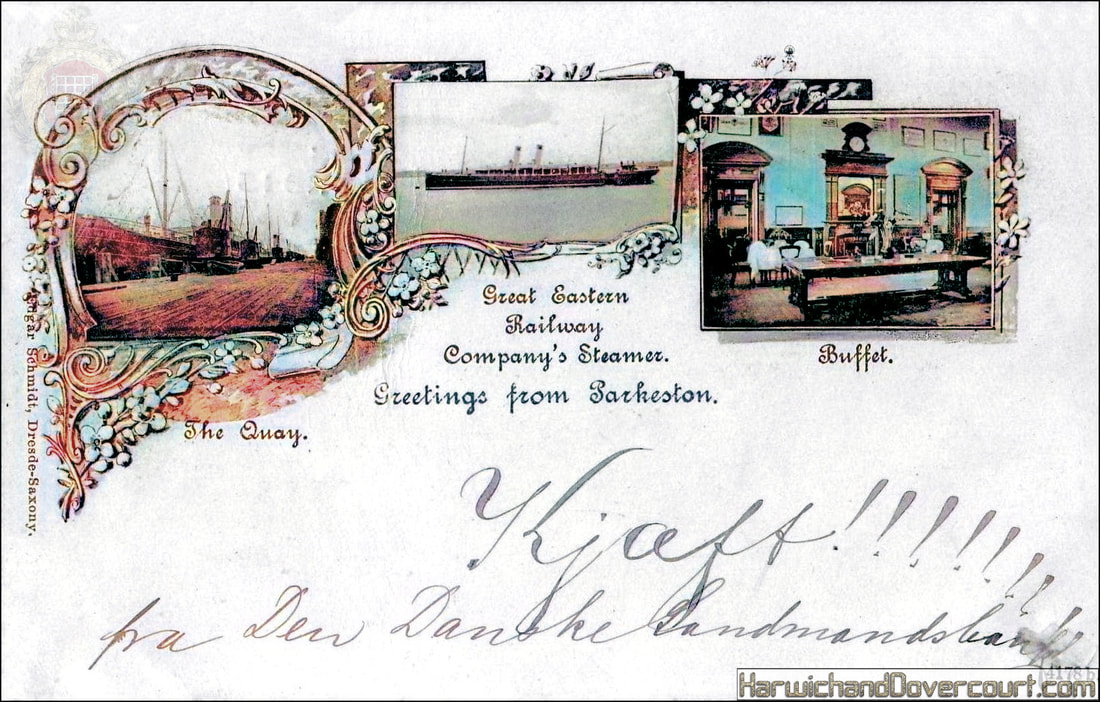 Great Eastern
Railway
Company's Steamer.
Buffet.
Greetings from Parkeston.
The Quay.
Schmidt, Dresde-Saxony.
Kjæft!!!!!!!
fra Den Danske Landmandsbank
4178 b
HarwichandDovercourt.com